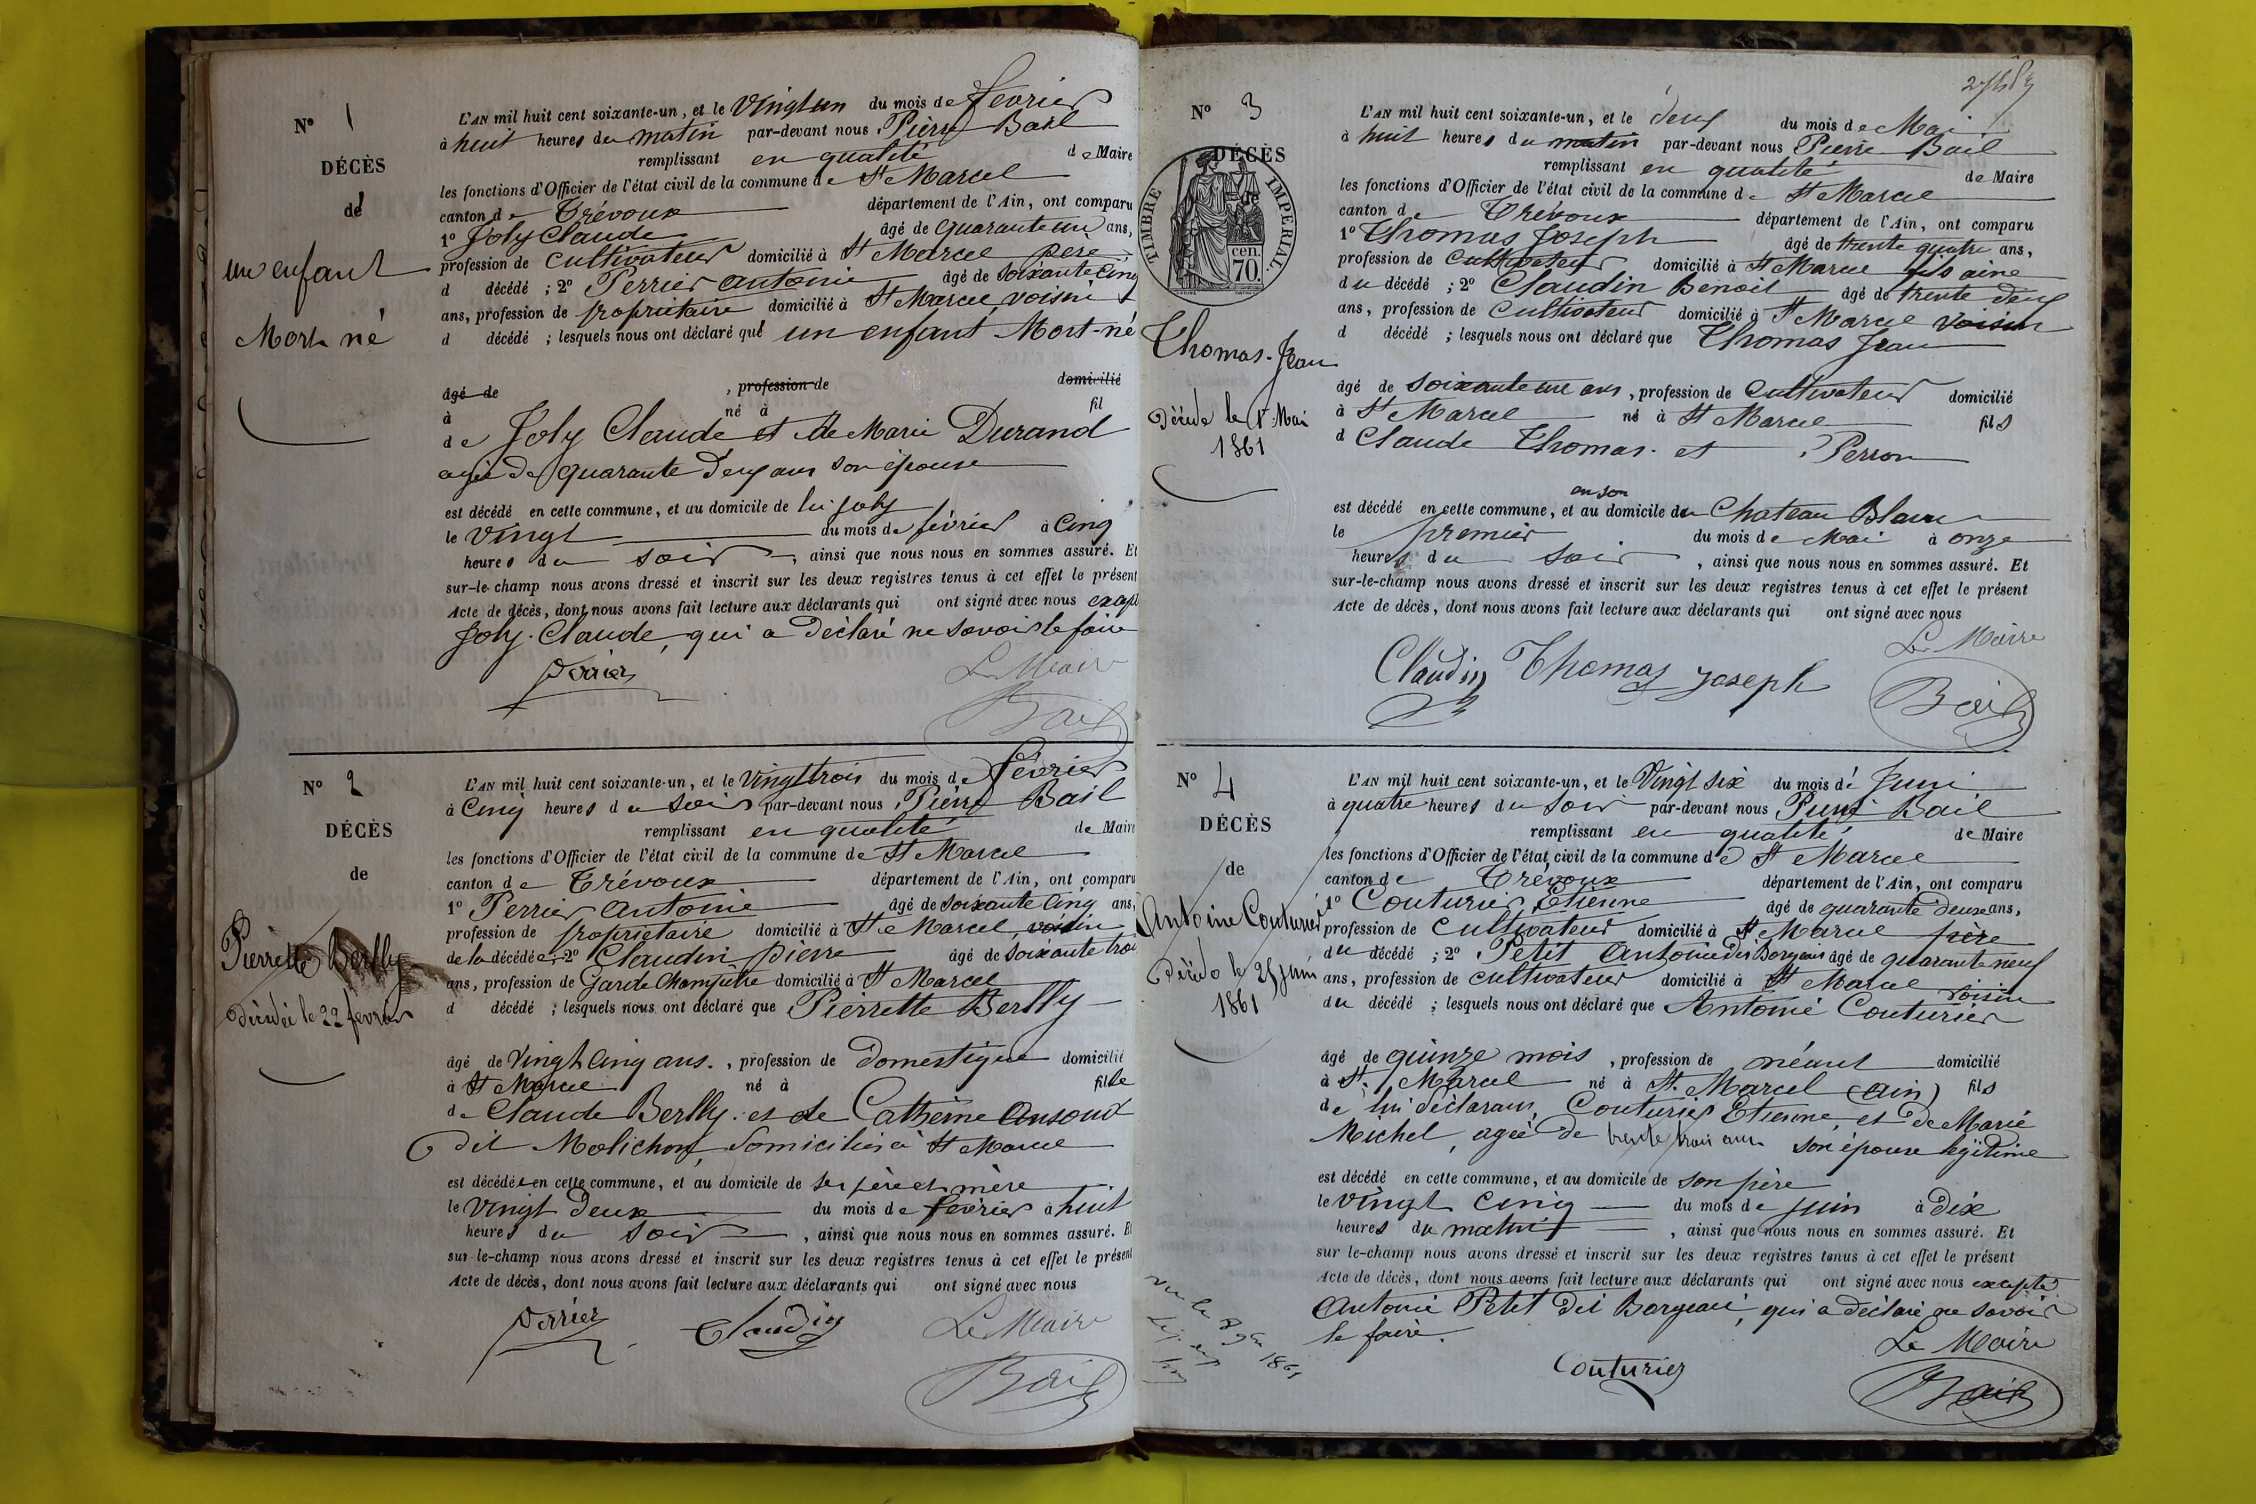 N° 1
DÉCÈS
de
un enfant
Mort né
L'AN mil huit cent soixante-un, et le vingt un du mois de fevrier
à huit heures du matin par-devant nous Pierre Bail
remplissant en qualité de Maire
les fonctions d'Officier de l'état civil de la commune de St Marcel
canton de Trévoux département de l'Ain, ont comparu
1° Joly Claude âgé de quarante un ans,
profession de cultivateur domicilié à St Marcel pere
d décédé ; 2° Perrier antoine âgé de soixante cinq
ans, profession de propriétaire domicilié à St Marcel voisin
d décédé ; lesquels nous ont déclaré que un enfant Mort-né
âgé de , profession de domicilié
à né à fil
de Joly Claude et de Marie Durand
agée de quarante deux ans son épouse
est décédé en cette commune, et au domicile de lui Joly
le vingt du mois de février à cinq
heures du soir , ainsi que nous nous en sommes assuré. Et
sur-le-champ nous avons dressé et inscrit sur les deux registres tenus à cet effet le présent
Acte de décès, dont nous avons fait lecture aux déclarants qui ont signé avec nous excepté
Joly Claude, qui a déclaré ne savoir le faire
Perrier Le Maire
Bail
N° 2
DÉCÈS
de
Pierrette Berlly
Décédée le 22 fevrier
L'AN mil huit cent soixante-un, et le vingt trois du mois de février
à cinq heures du soir par-devant nous Pierre Bail
remplissant en qualité de Maire
les fonctions d'Officier de l'état civil de la commune de St Marcel
canton de Trévoux département de l'Ain, ont comparu
1° Perrier antoine âgé de soixante cinq ans,
profession de propriétaire domicilié à St Marcel, voisin
de la décédée ; 2° Claudin pierre âgé de soixante trois
ans, profession de Garde Champêtre domicilié à St Marcel
d décédé ; lesquels nous ont déclaré que Pierrette Berlly
âgé de vingt cinq ans. , profession de domestique domicilié
à St Marcel né à fille
de Claude Berlly et de Catherine Ansoud
dit Molichon, domiciliés à St Marcel
est décédée en cette commune, et au domicile de ses père et mère
le vingt deux du mois de février à huit
heures du soir , ainsi que nous nous en sommes assuré. Et
sur-le-champ nous avons dressé et inscrit sur les deux registres tenus à cet effet le présent
Acte de décès, dont nous avons fait lecture aux déclarants qui ont signé avec nous
Perrier Claudin Le Maire
Bail
N° 3
DÉCÈS
de
TIMBRE IMPERIAL.
cen.
70.
Thomas Jean
Décédé le 1er Mai
1861
L'AN mil huit cent soixante-un, et le deux du mois de Mai
à huit heures du matin par-devant nous Pierre Bail
remplissant en qualité de Maire
les fonctions d'Officier de l'état civil de la commune de St Marcel
canton de Trévoux département de l'Ain, ont comparu
1° Thomas Joseph âgé de trente quatre ans,
profession de cultivateur domicilié à St Marcel fils ainé
du décédé ; 2° Claudin Benoit âgé de trente deux
ans, profession de cultivateur domicilié à St Marcel voisin
d décédé ; lesquels nous ont déclaré que Thomas Jean
âgé de soixante un ans, profession de cultivateur domicilié
à St Marcel né à St Marcel fils
d Claude Thomas et Perron
en son
est décédé en cette commune, et au domicile du Chateau Blanc
le premier du mois de Mai à onze
heures du soir , ainsi que nous nous en sommes assuré. Et
sur-le-champ nous avons dressé et inscrit sur les deux registres tenus à cet effet le présent
Acte de décès, dont nous avons fait lecture aux déclarants qui ont signé avec nous
Le Maire
Claudin Thomas Joseph
Bail
N° 4
DÉCÈS
de
Antoine Couturier
Décédé le 25 juin
1861
L'AN mil huit cent soixante-un, et le vingt six du mois de Juin
à quatre heures du soir par-devant nous Pierre Bail
remplissant en qualité de Maire
les fonctions d'Officier de l'état civil de la commune de St Marcel
canton de Trévoux département de l'Ain, ont comparu
1° Couturier Etienne âgé de quarante deux ans,
profession de cultivateur domicilié à St Marcel père
du décédé ; 2° Petit Antoine dit Borgeau âgé de quarante neuf
ans, profession de cultivateur domicilié à St Marcel voisin
du décédé ; lesquels nous ont déclaré que Antoine Couturier
âgé de quinze mois , profession de néant domicilié
à St. Marcel né à St. Marcel (ain) fils
de lui déclarant, Couturier Etienne, et de Marie
Michel, agée de trente trois ans son épouse légitime
est décédé en cette commune, et au domicile de son père
le vingt cinq du mois de juin à dix
heures du matin , ainsi que nous nous en sommes assuré. Et
sur le-champ nous avons dressé et inscrit sur les deux registres tenus à cet effet le présent
Acte de décès, dont nous avons fait lecture aux déclarants qui ont signé avec nous excepté
Antoine Petit dit Borgeau, qui a déclaré ne savoir
le faire.
Le Maire
Couturier
Bail